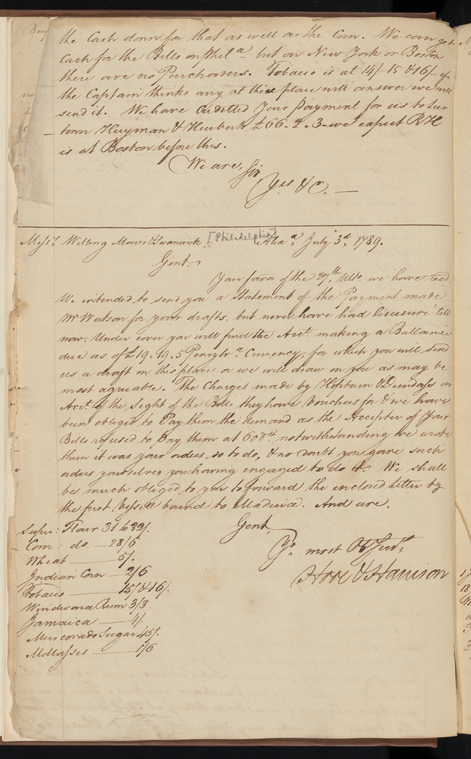 the Cash down for that as well as the Corn. We can get
Cash for the Bills on Phila. but on New York or Boston
there are no Purchasers. Tobacco is at 14/- 15 & 16/- if
the Captain thinks any at these place will answer we will
send it. We have Credited Your payment for us to
Huyman & £66.2.3 we expect RH
is at Boston before this.
We are, Sir
Yrs. &c.
Messrs. Willing Morris & Swanwick [Philadelphia] Alexa. July 3d. 1789.
Gent.
Your favor of the 27th. Ulto. we have recd.
We intended to send you a Statement of the Payment made
Mr Watson for your drafts, but never have had leisure till
now. Under cover you will find the Acct. making a Ballance
due us of £19.19.5 Pensyla. Currency, for which you will send
us a draft on this place or we will draw on you as may be
most agreeable. The Charges made by Hepburn & Dundass on
Acct. of the Sight of the Bills they have Vouchers for & we have
been obliged to Pay them the demand as the Accepter of Your
Bills refused to Pay them at notwithstanding we wrote
them it was your orders, so to do, & no doubt you gave such
orders yourselves, you having engaged to do it. We shall
be much obliged to you to forward the inclosed letter by
the first vessell bound to Madeira. And are,
Gent.
Yr. most Ob Servts.
Hooe & Harrison
Super: Flour 31 & 32/.
Com: do. 28/6
Wheat 6/.
Indian Corn 2/6
Tobacco 15/ & 16/.
Windward Rum 3/3
Jamaica 4/
Muscovado Sugar 45/.
Molasses 1/6